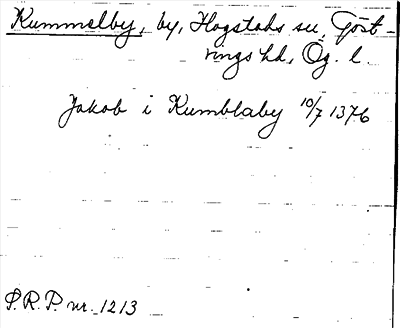 Kummelby, by, Hogstads sn, Göst-
rings hd, Ög. l.
Jakob i Kumblaby 10/7 1376
S.R.P. nr. 1213